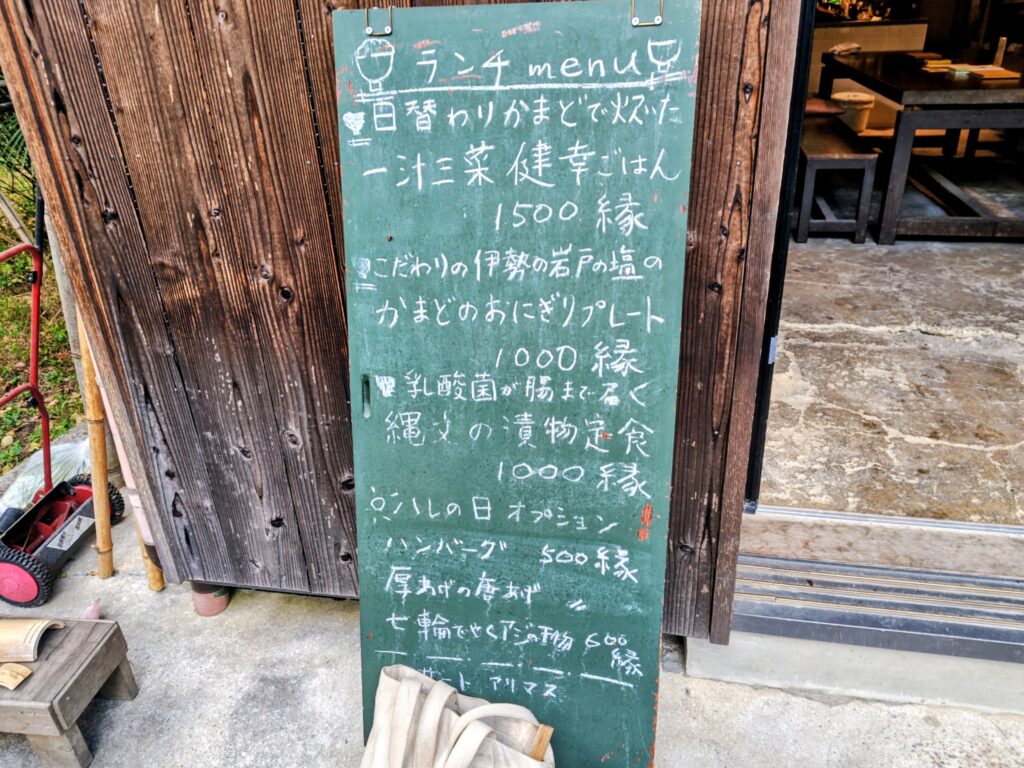 ランチ menu
日替わりかまどで炊いた
一汁三菜 健幸ごはん
1500 縁
こだわりの伊勢の岩戸の塩の
かまどのおにぎりプレート
1000 縁
乳酸菌が腸まで届く
縄文の漬物定食
1000 縁
ハレの日 オプション
ハンバーグ 500 縁
厚あげの唐あげ 〃
七輪でやくアジの干物 600
縁
ザート アリマス